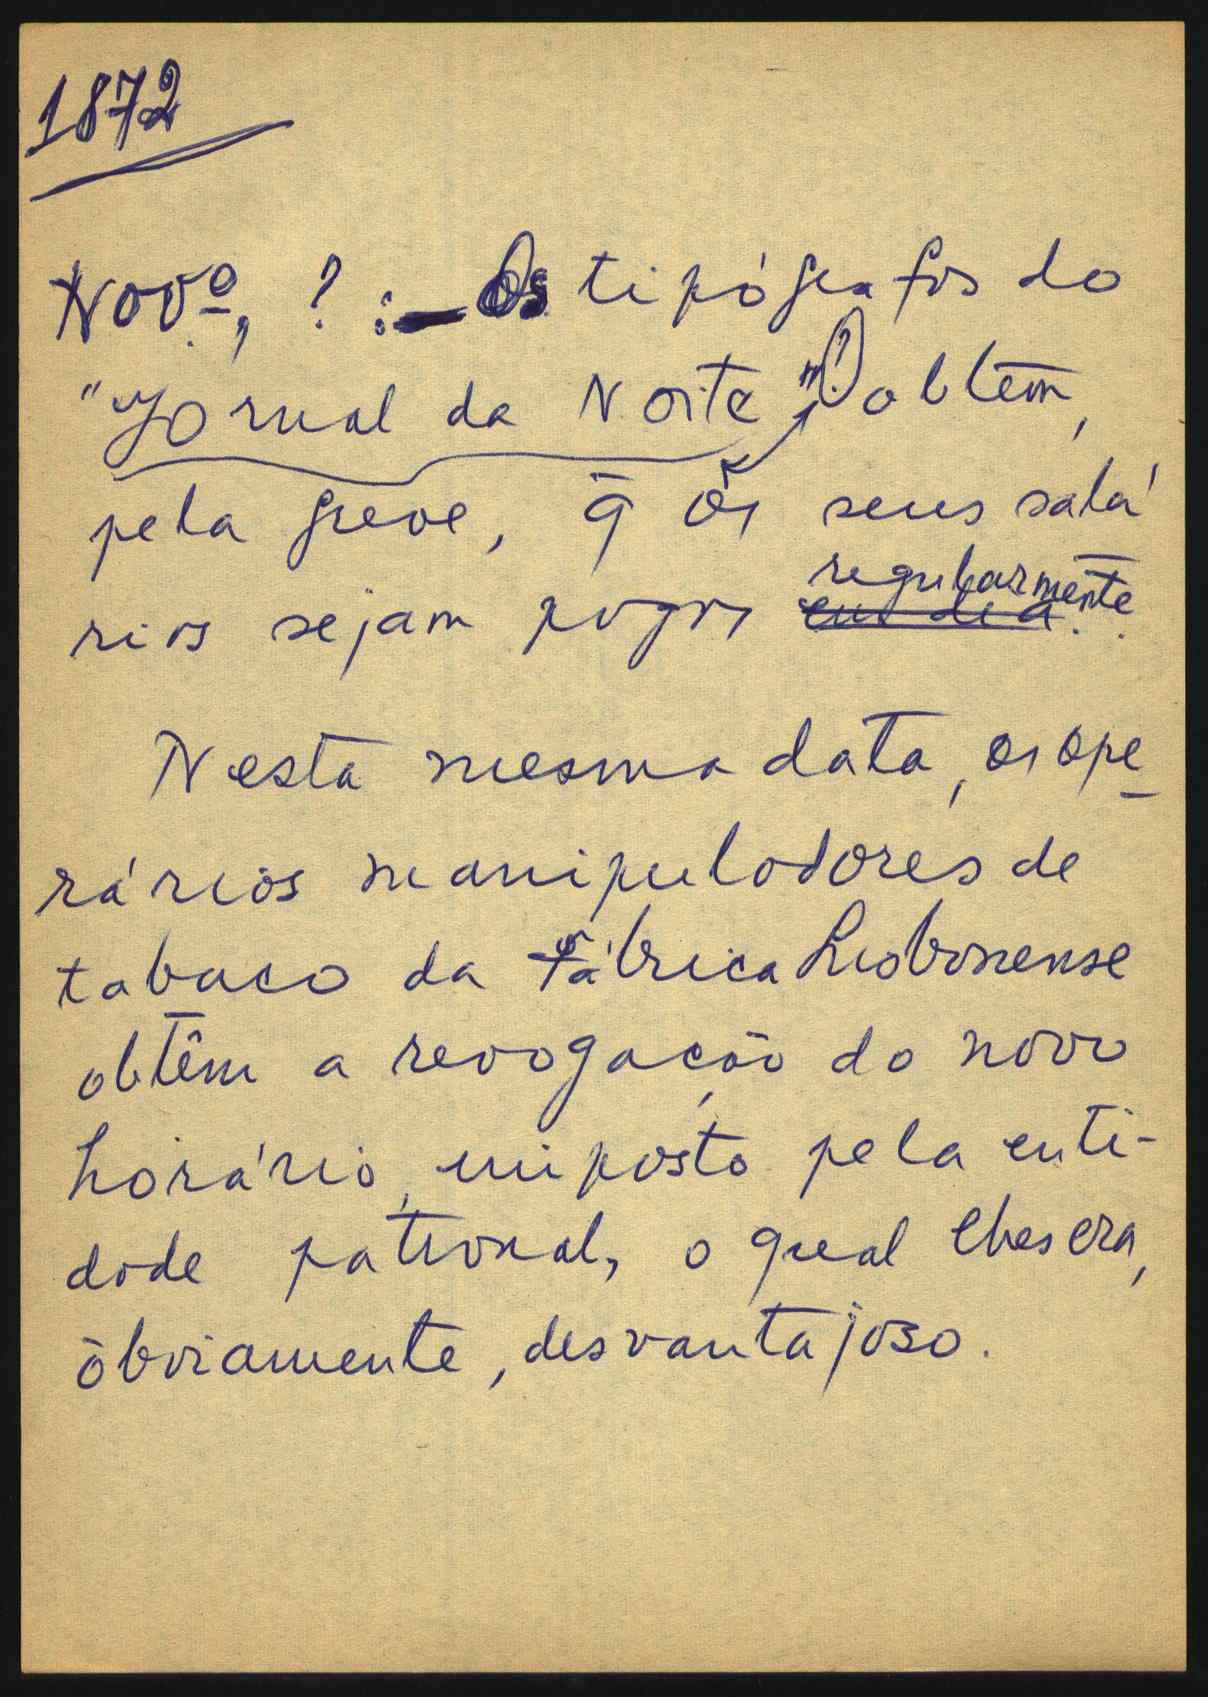 1872
Novº, ? : — Os tipógrafos do
"Jornal da Noite" (?) obtêm,
pela greve, q̄ os seus salá
rios sejam pagos ~~em dia~~ regularmente.
Nesta mesma data, os ope
rários manipuladores de
tabaco da Fábrica Lisbonense
obtêm a revogação do novo
horário, imposto pela enti-
dade patronal, o qual lhes era,
òbviamente, desvantajoso.